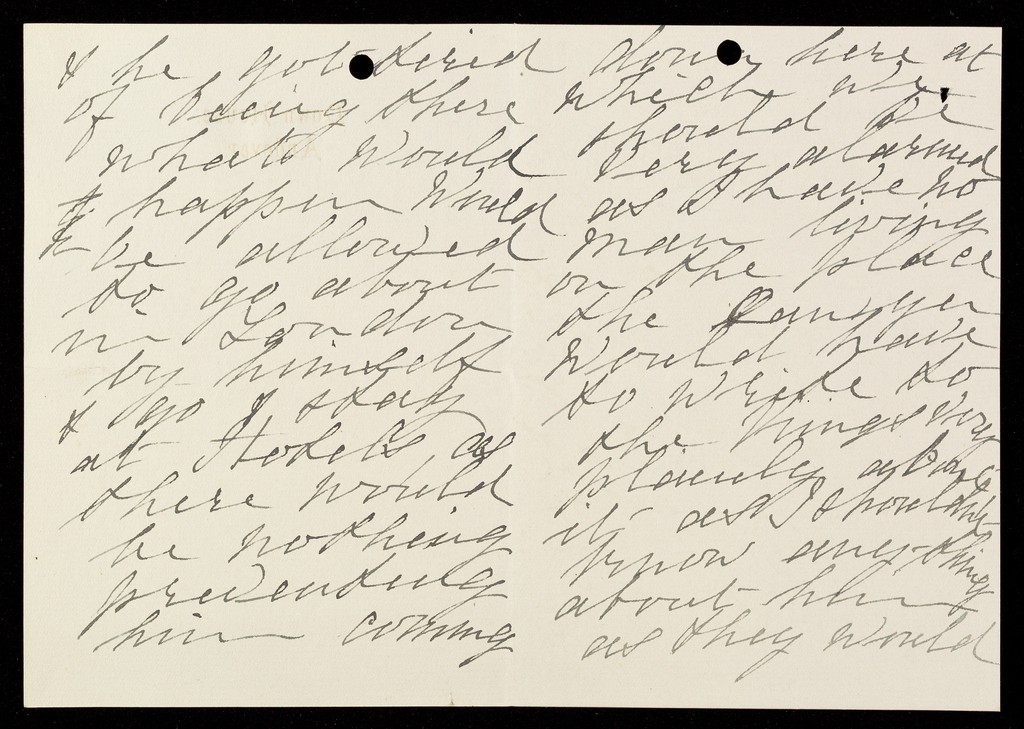 & he got tired
of being there
what would
happen would
he be allowed
to go about
in London
by himself
& go & stay
at Hotels as
there would
be nothing
preventing
him coming
down here at
which we
should be
very alarmed
as I have no
man living
on the place
the Lawyer
would have
to write to
the Kings very
plainly about
it as I shouldnt
know anything
about him
as they would